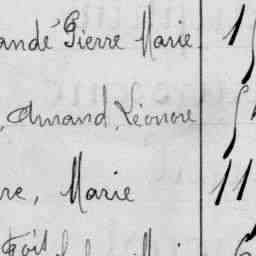 andé Pierre Marie 1
, Amand, Léonore
re, Marie 11